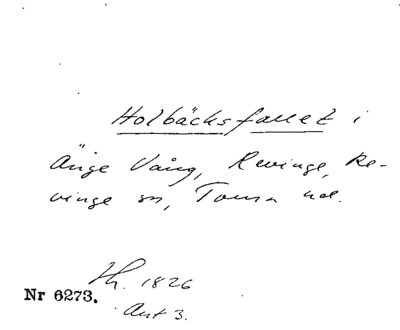 Holbäcksfallet i
Änge Vång, Revinge, Re-
vinge sn, Torna hd.
Nr 6273.
Lh. 1826
Akt 3.